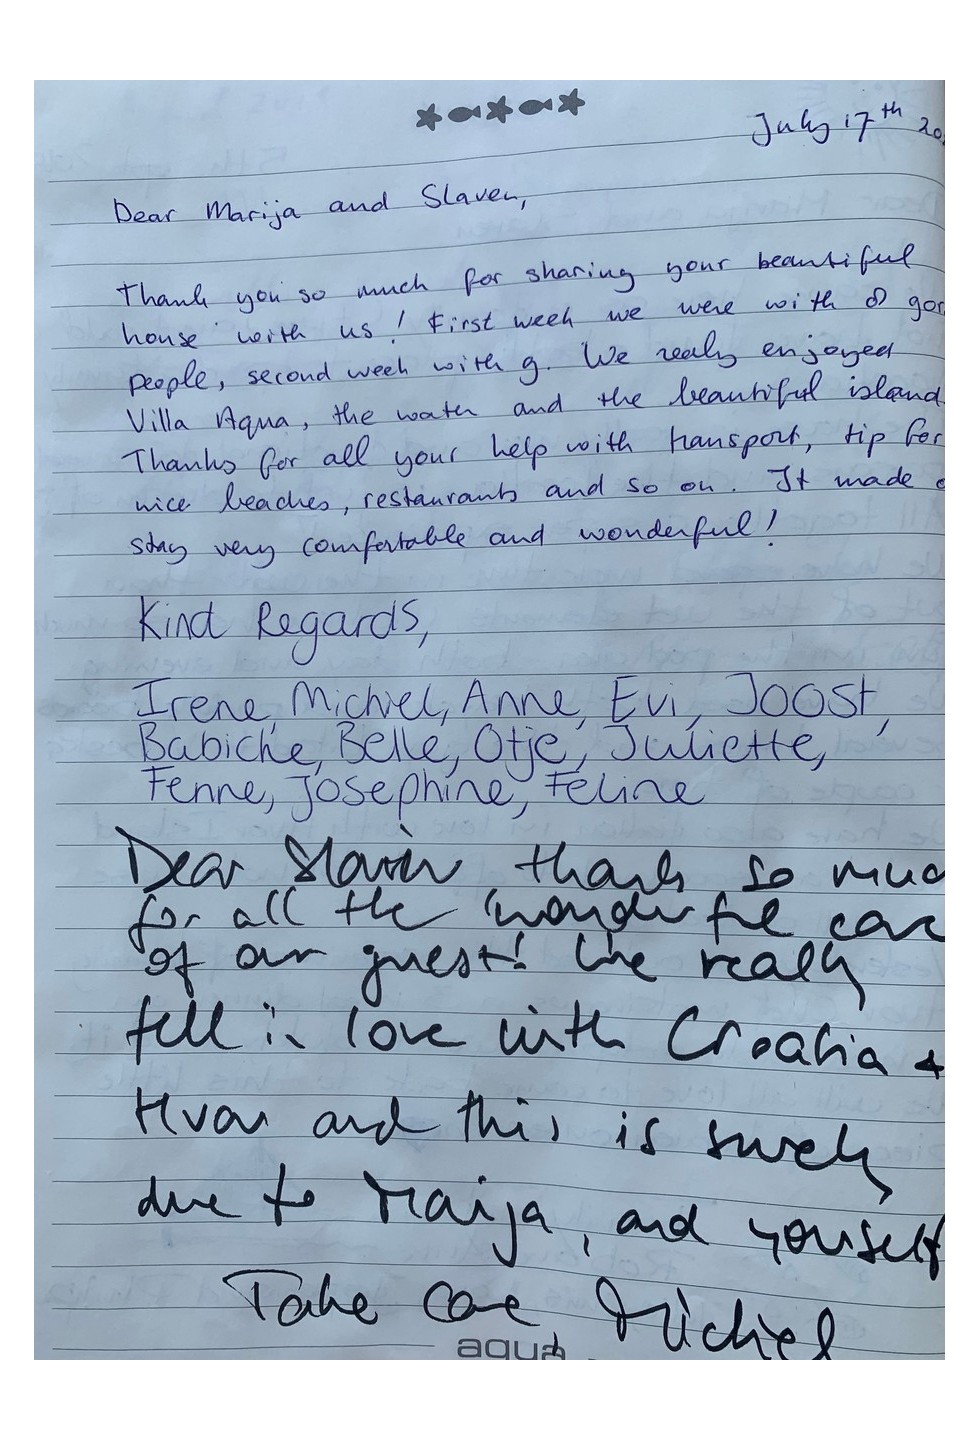 July 17th 20
Dear Marija and Slaven,
Thank you so much for sharing your beautiful
house with us! First week we were with 8 gor
people, second week with 9. We realy enjoyed
Villa Aqua, the water and the beautiful island.
Thanks for all your help with transport, tip for
nice beaches, restaurants and so on. It made o
stay very comfortable and wonderful!
Kind Regards,
Irene, Michiel, Anne, Evi, Joost,
Babiche, Belle, Otje, Juliette,
Fenne, Josephine, Feline
Dear Slavin thank so muc
for all the wonderful care
of our guest! We really
fell in love with Croatia +
Hvar and this is surely
due to Maija, and yourself
Take care Michiel
aqua